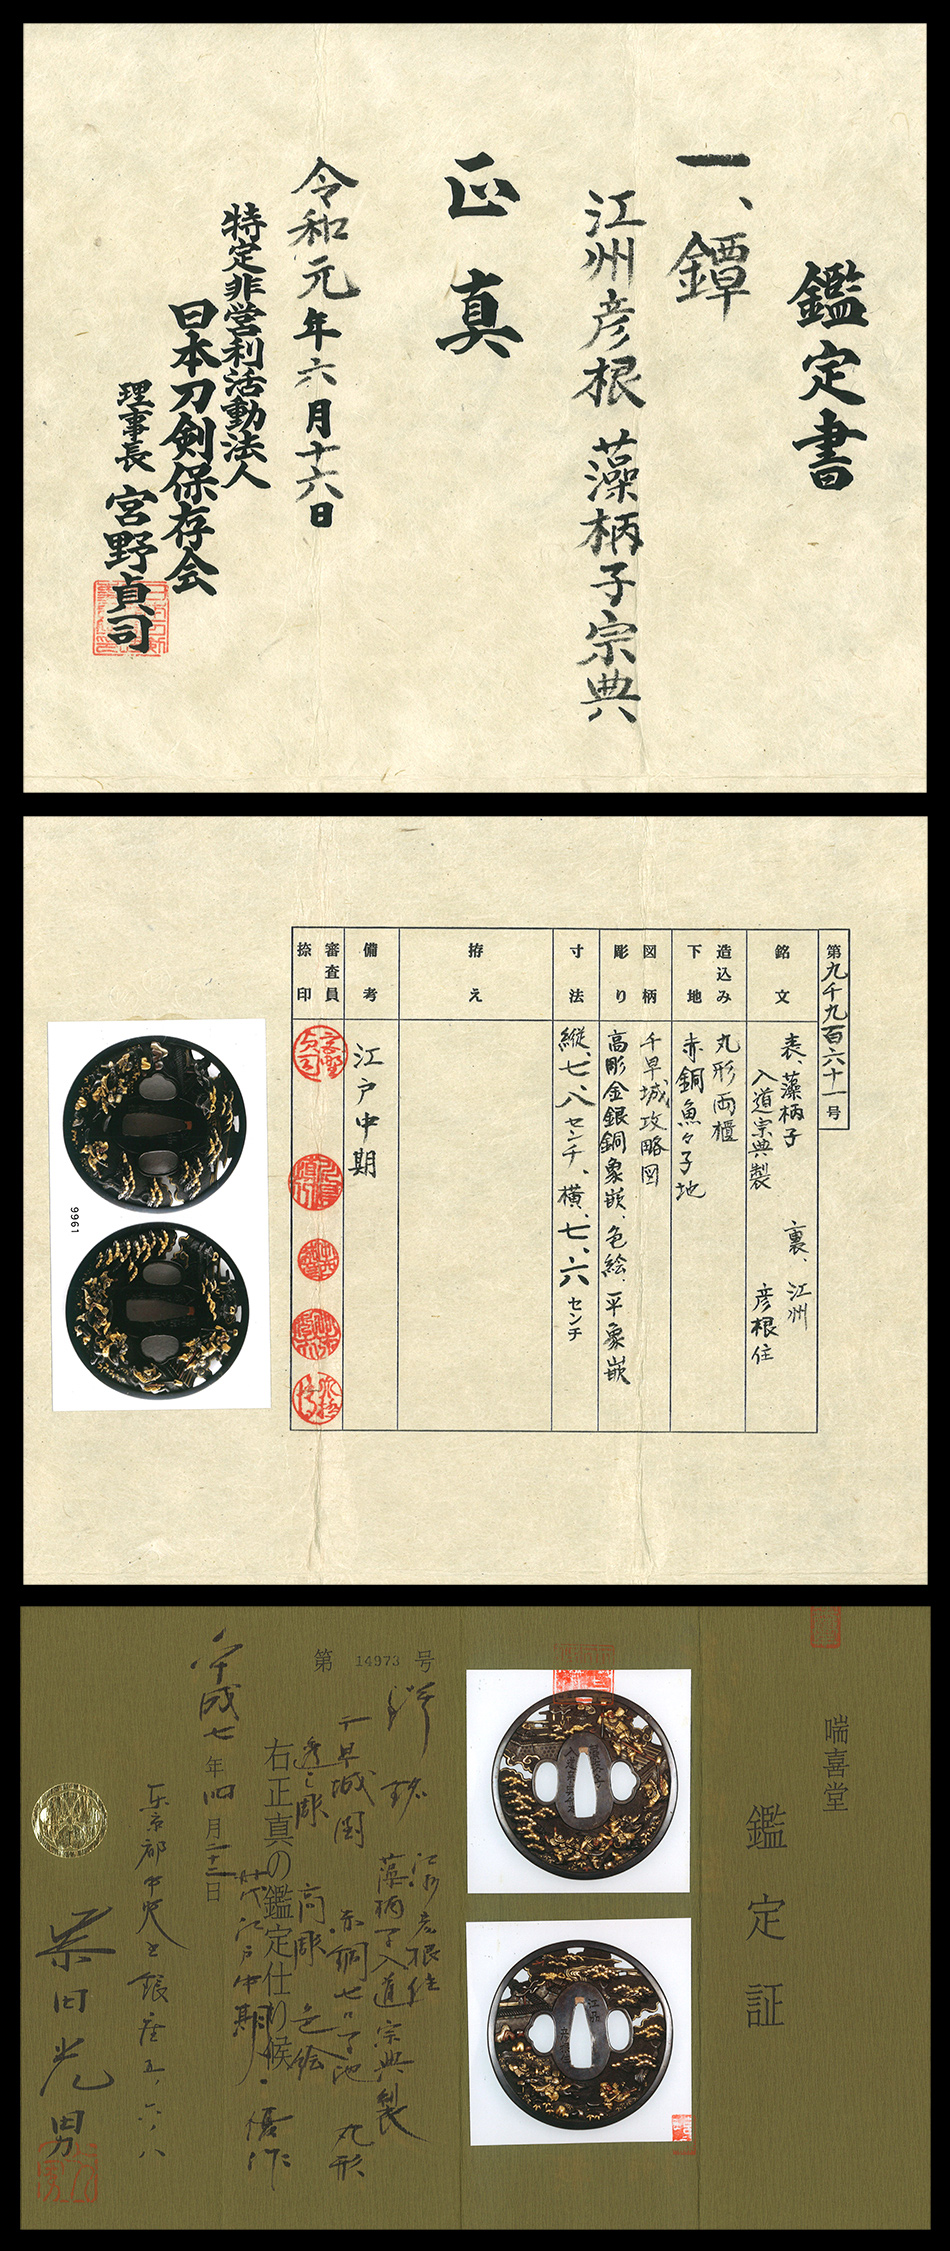 鑑定書
一、鐔
江州彦根 藻柄子宗典
正真
令和元年六月十六日
特定非営利活動法人
日本刀剣保存会
理事長 宮野貞司
第九千九百六十一号
銘文
表、藻柄子
入道宗典製
裏、江州
彦根住
造込み
丸形両櫃
下地
赤銅魚々子地
図柄
千早城攻略図
彫り
高彫金銀銅象嵌、色絵、平象嵌
寸法
縦、七、八センチ、横、七、六センチ
拵え
備考
江戸中期
審査員
捺印
9961
喘喜堂
鑑定証
第 14973 号
鐔 銘
江州彦根住
藻柄子入道宗典製
千早城図 赤銅七々子地 丸形
透し彫 高彫 色絵
右正真の鑑定仕り候
時代江戸中期 傑作
平成七年四月二十三日
東京都中央区銀座五、六、八
柴田光男